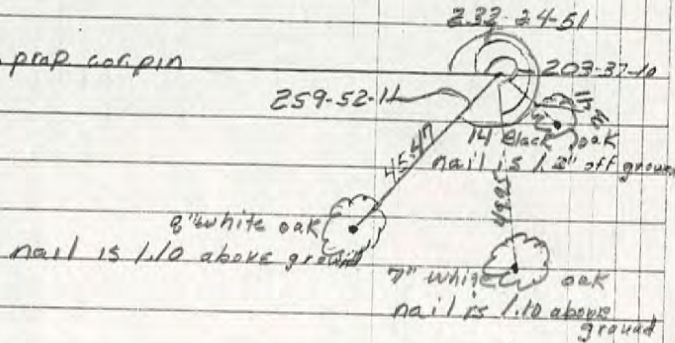 232-24-51
prop cor. pin
203-37-10
259-52-11
45.47
14" Black oak
nail is 1.2" off ground
8" white oak
nail is 1.10 above ground
7" white oak
nail is 1.10 above
ground